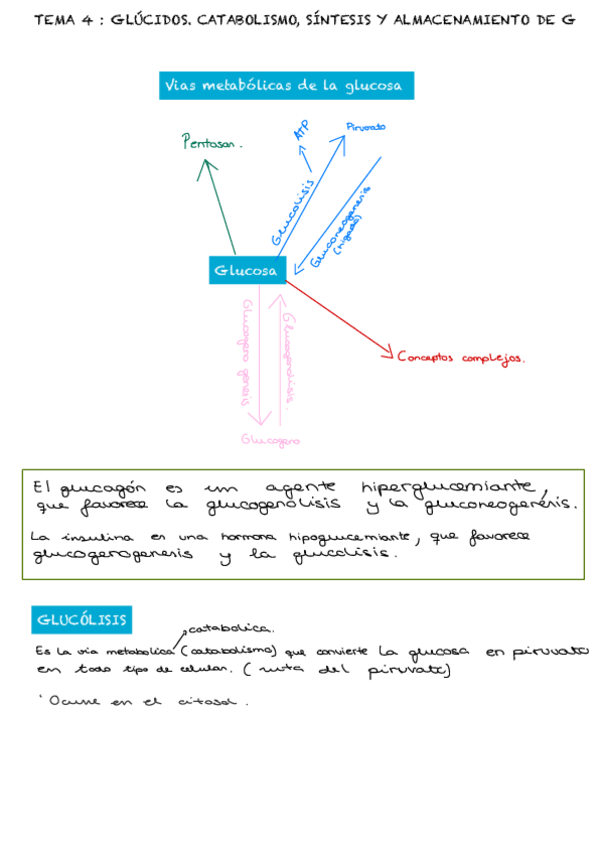 TEMA 4 : GLÚCIDOS. CATABOLISMO, SÍNTESIS Y ALMACENAMIENTO DE G
Vias metabólicas de la glucosa
ATP
Piruvato
Pentosas.
Glucolisis
Gluconeogenesis
(hígado)
Glucosa
Glucogeno genesis
Glucogenolisis.
Conceptos complejos.
Glucogeno
El glucagón es un agente hiperglucemiante,
que favorece la glucogenolisis y la gluconeogenésis.
La insulina es una hormona hipoglucemiante, que favorece
glucogenogenesis y la glucolisis.
GLUCÓLISIS
catabolica.
Es la via metabolica (catabolismo) que convierte la glucosa en piruvato
en todo tipo de celulas. (ruta del piruvato)
· Ocurre en el citosol.